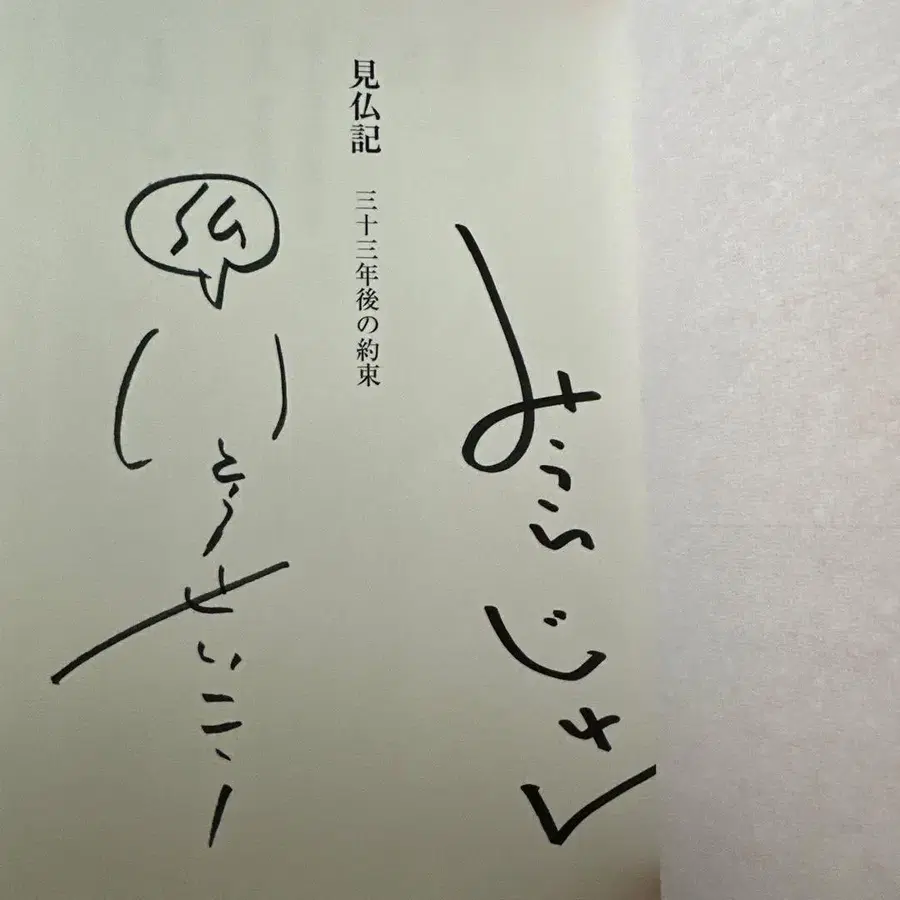 みうらじゅん
見仏記 三十三年後の約束
仏
いとうせいこう